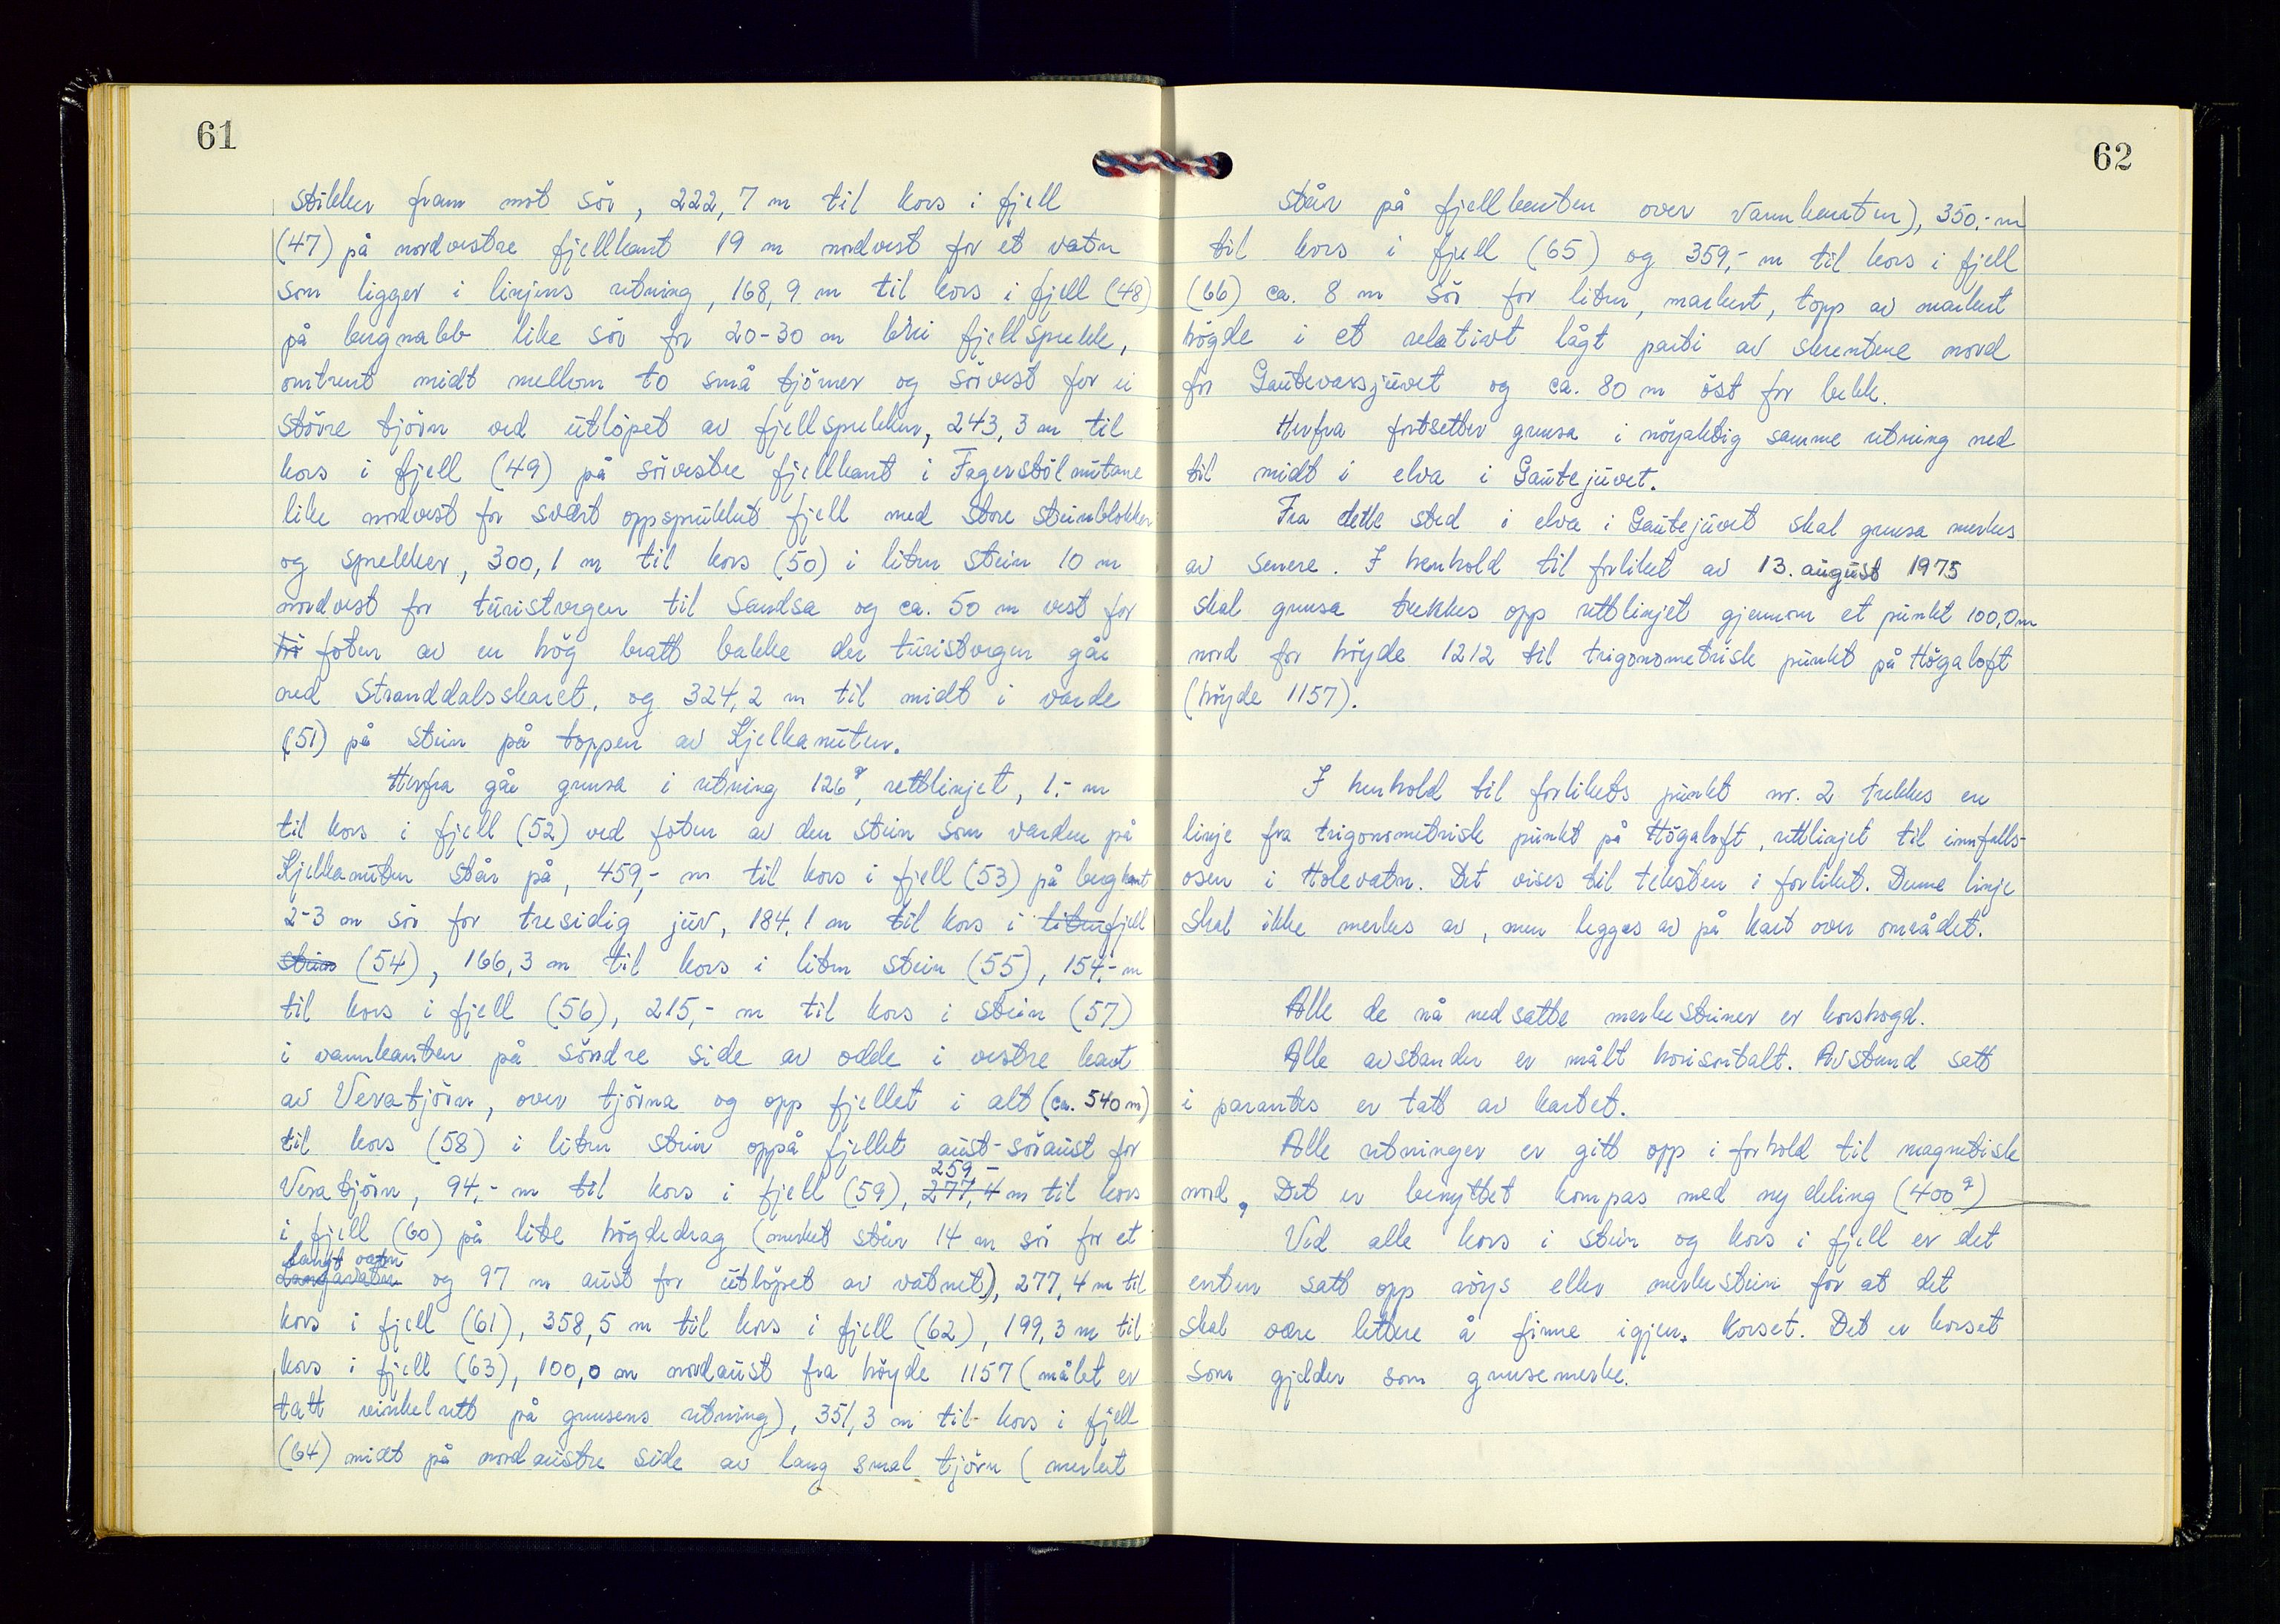 61
stikker fram mot sör, 222,7 m til kors i fjell
(47) på nordvestre fjellkant 19 m nordvest for et vatn
som ligger i linjens retning, 168,9 m til kors i fjell (48)
på bergnabb like sör for 20-30 m brei fjellsprekk,
omtrent midt mellom to små tjörner og sörvest for ei
större tjörn ved utlöpet av fjellsprekken, 243,3 m til
kors i fjell (49) på sörvestre fjellkant i Fagerstölnutane
like nordvest for svært oppsprukket fjell med store steinblokker
og sprekker, 300,1 m til kors (50) i liten stein 10 m
nordvest for turistvegen til Sandsa og ca. 50 m vest for
foten av en hög bratt bakke der turistvegen går
ned Stranddalsskaret, og 324,2 m til midt i varde
(51) på stein på toppen av Kjelkanuten.
Herfra går grensa i retning 126g, rettlinjet, 1.- m
til kors i fjell (52) ved foten av den stein som varden på
Kjelkanuten står på, 459,- m til kors i fjell (53) på bergkant
2-3 m sör for tresidig juv, 184,1 m til kors i liten fjell
stein (54), 166,3 m til kors i liten stein (55), 154,- m
til kors i fjell (56), 215,- m til kors i stein (57)
i vannkanten på söndre side av odde i vestre kant
av Veratjörn, over tjörna og opp fjellet i alt (ca. 540 m)
til kors (58) i liten stein oppå fjellet aust-söraust for
259,-
Veratjörn, 94,- m til kors i fjell (59), 277,4 m til kors
i fjell (60) på lite högdedrag (merket står 14 m sör for et
langt vatn
Langavatn og 97 m aust for utlöpet av vatnet), 277,4 m til
kors i fjell (61), 358,5 m til kors i fjell (62), 199,3 m til
kors i fjell (63), 100,0 m nordaust fra höyde 1157 (målet er
tatt vinkelrett på grensens retning), 351,3 m til kors i fjell
(64) midt på nordaustre side av lang smal tjörn (merket
62
står på fjellkanten over vannkanten), 350,- m
til kors i fjell (65) og 359,- m til kors i fjell
(66) ca. 8 m sör for liten, markert, topp av markert
högde i et relativt lågt parti av skrentene nord
for Gautevassjuvet og ca. 80 m öst for bekk.
Herfra fortsetter grensa i nöyaktig samme retning ned
til midt i elva i Gautejuvet.
Fra dette sted i elva i Gautejuvet skal grensa merkes
av senere. I henhold til forliket av 13. august 1975
skal grensa trekkes opp rettlinjet gjennom et punkt 100,0 m
nord for höyde 1212 til trigonometrisk punkt på Högaloft
(höyde 1157).
I henhold til forlikets punkt nr. 2 trekkes en
linje fra trigonometrisk punkt på Högaloft, rettlinjet til innfalls-
osen i Holevatn. Det vises til teksten i forliket. Denne linje
skal ikke merkes av, men legges av på kart over området.
Alle de nå nedsatte merkesteiner er korshogd.
Alle avstander er målt horisontalt. Avstand satt
i parantes er tatt av kartet.
Alle retninger er gitt opp i forhold til magnetisk
nord. Det er benyttet kompas med ny deling (400g)
Ved alle kors i stein og kors i fjell er det
enten satt opp röys eller merkestein for at det
skal være lettere å finne igjen korset. Det er korset
som gjelder som grensemerke.